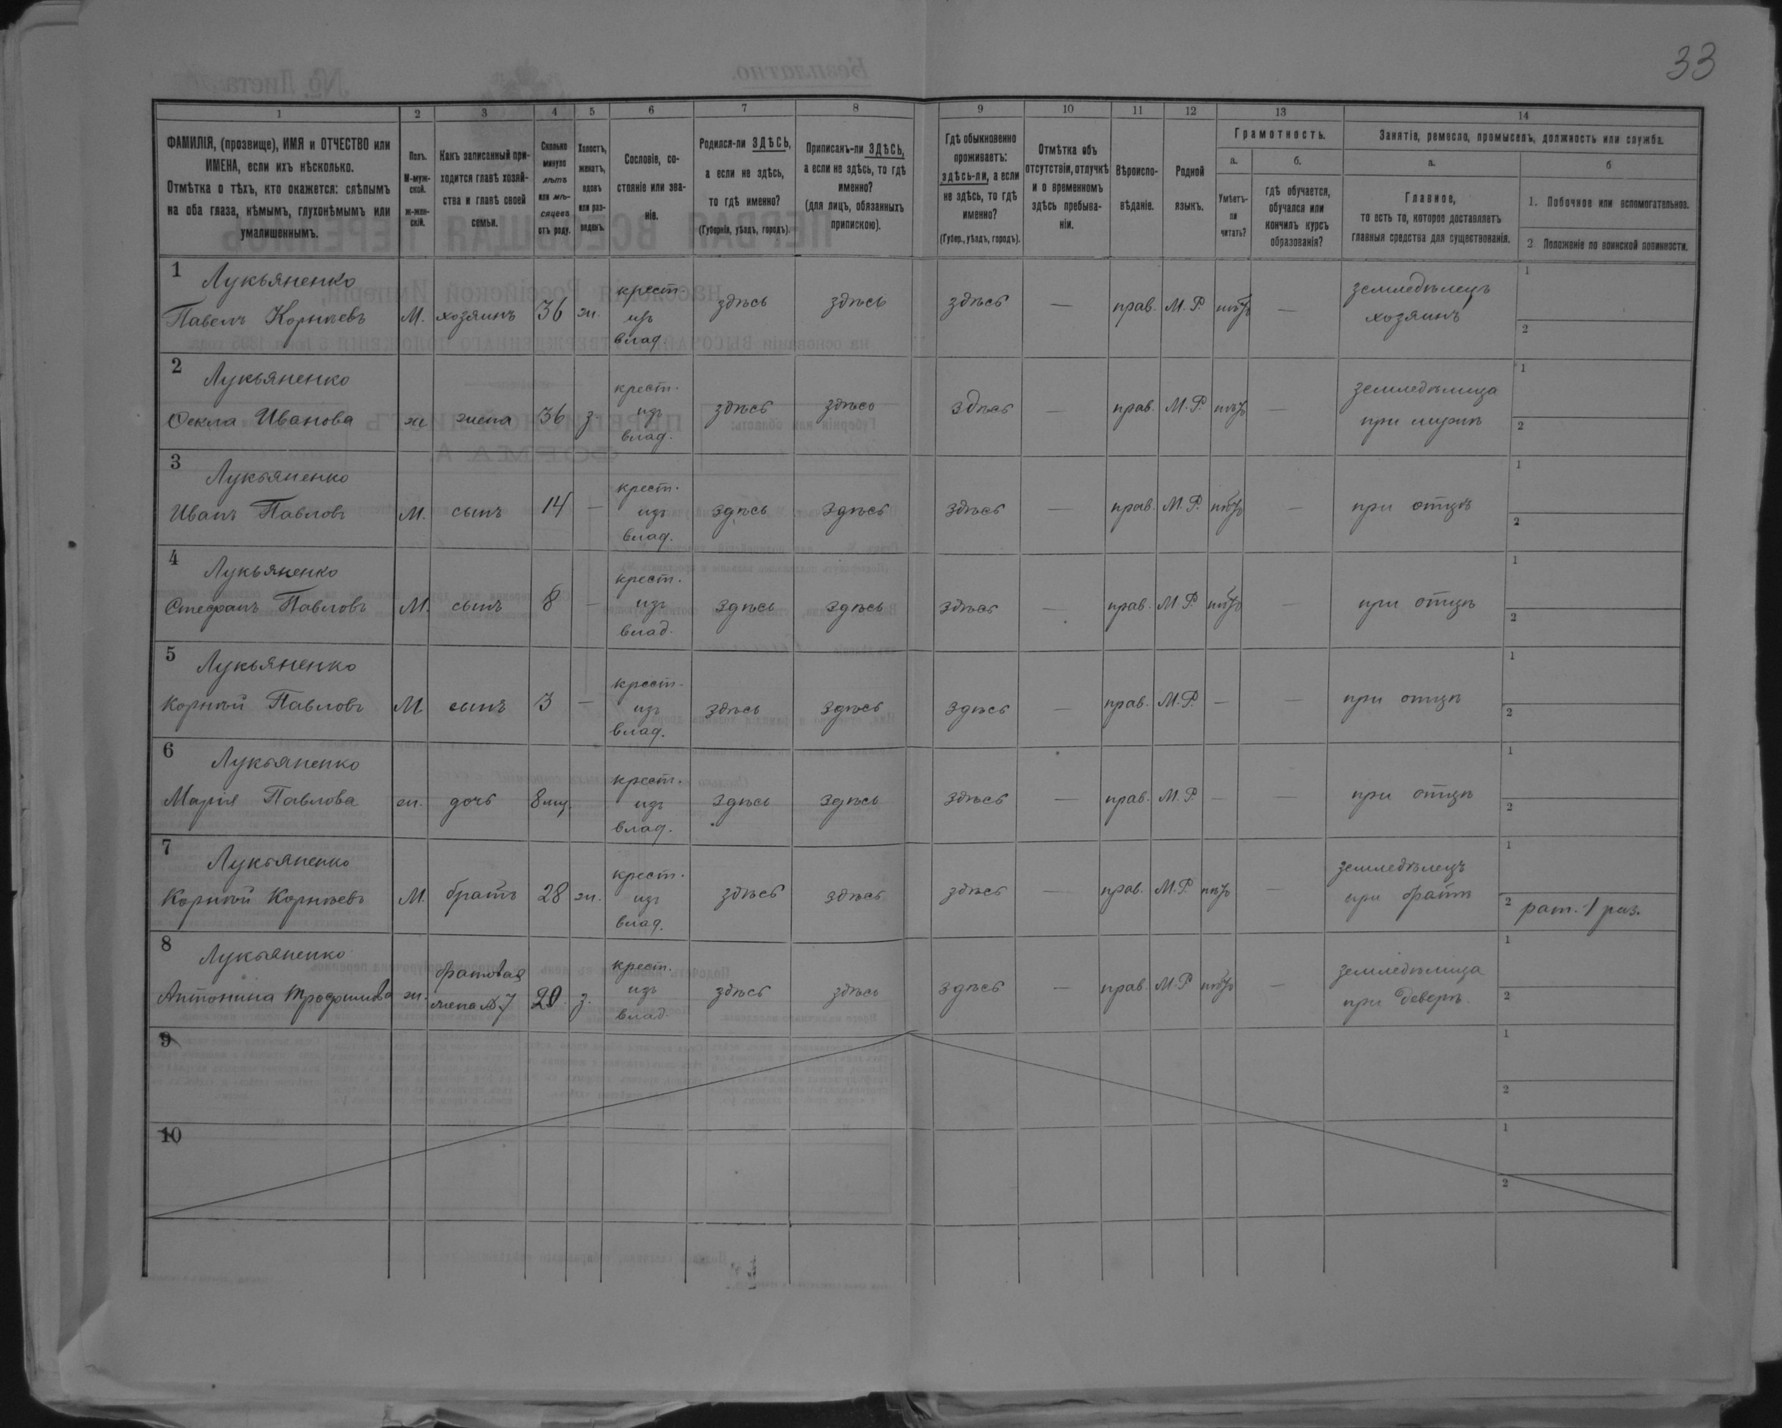 33
1 2 3 4 5 6 7 8 9 10 11 12 13 14
ФАМИЛІЯ, (прозвище), ИМЯ и ОТЧЕСТВО или
ИМЕНА, если ихъ нѣсколько.
Отмѣтка о тѣхъ, кто окажется: слѣпымъ
на оба глаза, нѣмымъ, глухонѣмымъ или
умалишеннымъ.
Полъ.
М-муж-
ской.
ж-жен-
скій.
Какъ записанный при-
ходится главѣ хозяй-
ства и главѣ своей
семьи.
Сколько
минуло
лѣтъ
или мѣ-
сяцевъ
отъ роду.
Холостъ,
женатъ,
вдовъ
или раз-
веденъ.
Сословіе, со-
стояніе или зва-
ніе.
Родился-ли ЗДѢСЬ,
а если не здѣсь,
то гдѣ именно?
(Губернія, уѣздъ, городъ).
Приписанъ-ли ЗДѢСЬ,
а если не здѣсь, то гдѣ
именно?
(для лицъ, обязанныхъ
припискою).
Гдѣ обыкновенно
проживаетъ:
здѣсь-ли, а если
не здѣсь, то гдѣ
именно?
(Губер., уѣздъ, городъ).
Отмѣтка объ
отсутствіи, отлучкѣ
и о временномъ
здѣсь пребыва-
ніи.
Вѣроиспо-
вѣданіе.
Родной
языкъ.
Грамотность.
а.
Умѣетъ-
ли
читать?
б.
гдѣ обучается,
обучался или
кончилъ курсъ
образованія?
Занятіе, ремесло, промыселъ, должность или служба.
а.
Главное,
то есть то, которое доставляетъ
главныя средства для существованія.
б
1. Побочное или вспомогательное.
2. Положеніе по воинской повинности.
1 Лукьяненко
Павелъ Корнѣевъ М. хозяинъ 36 ж. крест. изъ влад. здѣсь здѣсь здѣсь — прав. М.Р. нѣтъ — земледѣлецъ хозяинъ 1 2
2 Лукьяненко
Фекла Иванова ж жена 36 з. крест. изъ влад. здѣсь здѣсь здѣсь — прав. М.Р. нѣтъ — земледѣлица при мужѣ 1 2
3 Лукьяненко
Иванъ Павловъ М. сынъ 14 — крест. изъ влад. здѣсь здѣсь здѣсь — прав. М.Р. нѣтъ — при отцѣ 1 2
4 Лукьяненко
Стефанъ Павловъ М. сынъ 8 — крест. изъ влад. здѣсь здѣсь здѣсь — прав. М.Р. нѣтъ — при отцѣ 1 2
5 Лукьяненко
Корнѣй Павловъ М сынъ 3 — крест. изъ влад. здѣсь здѣсь здѣсь — прав. М.Р. — — при отцѣ 1 2
6 Лукьяненко
Марія Павлова ж. дочь 8 мц. крест. изъ влад. здѣсь здѣсь здѣсь — прав. М.Р. — — при отцѣ 1 2
7 Лукьяненко
Корнѣй Корнѣевъ М. братъ 28 ж. крест. изъ влад. здѣсь здѣсь здѣсь — прав. М.Р. нѣтъ — земледѣлецъ при братѣ 1 2 рат. 1 раз.
8 Лукьяненко
Антонина Трофимова ж. братовая жена №7 20 з. крест. изъ влад. здѣсь здѣсь здѣсь — прав. М.Р. нѣтъ — земледѣлица при деверѣ. 1 2
9 1 2
10 1 2